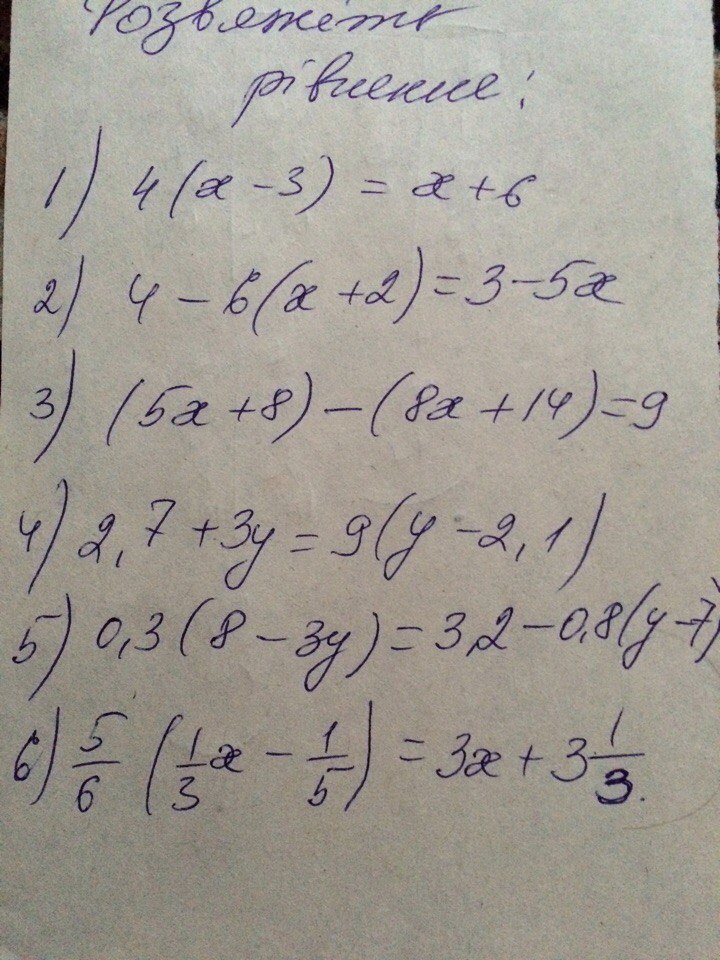 Розвяжіть
рівнение:
1) 4(x-3) = x+6
2) 4-6(x+2)=3-5x
3) (5x+8)-(8x+14)=9
4) 2,7+3y=9(y-2,1)
5) 0,3(8-3y)=3,2-0,8(y-7)
6) 5/6 (1/3x - 1/5) = 3x + 3 1/3.